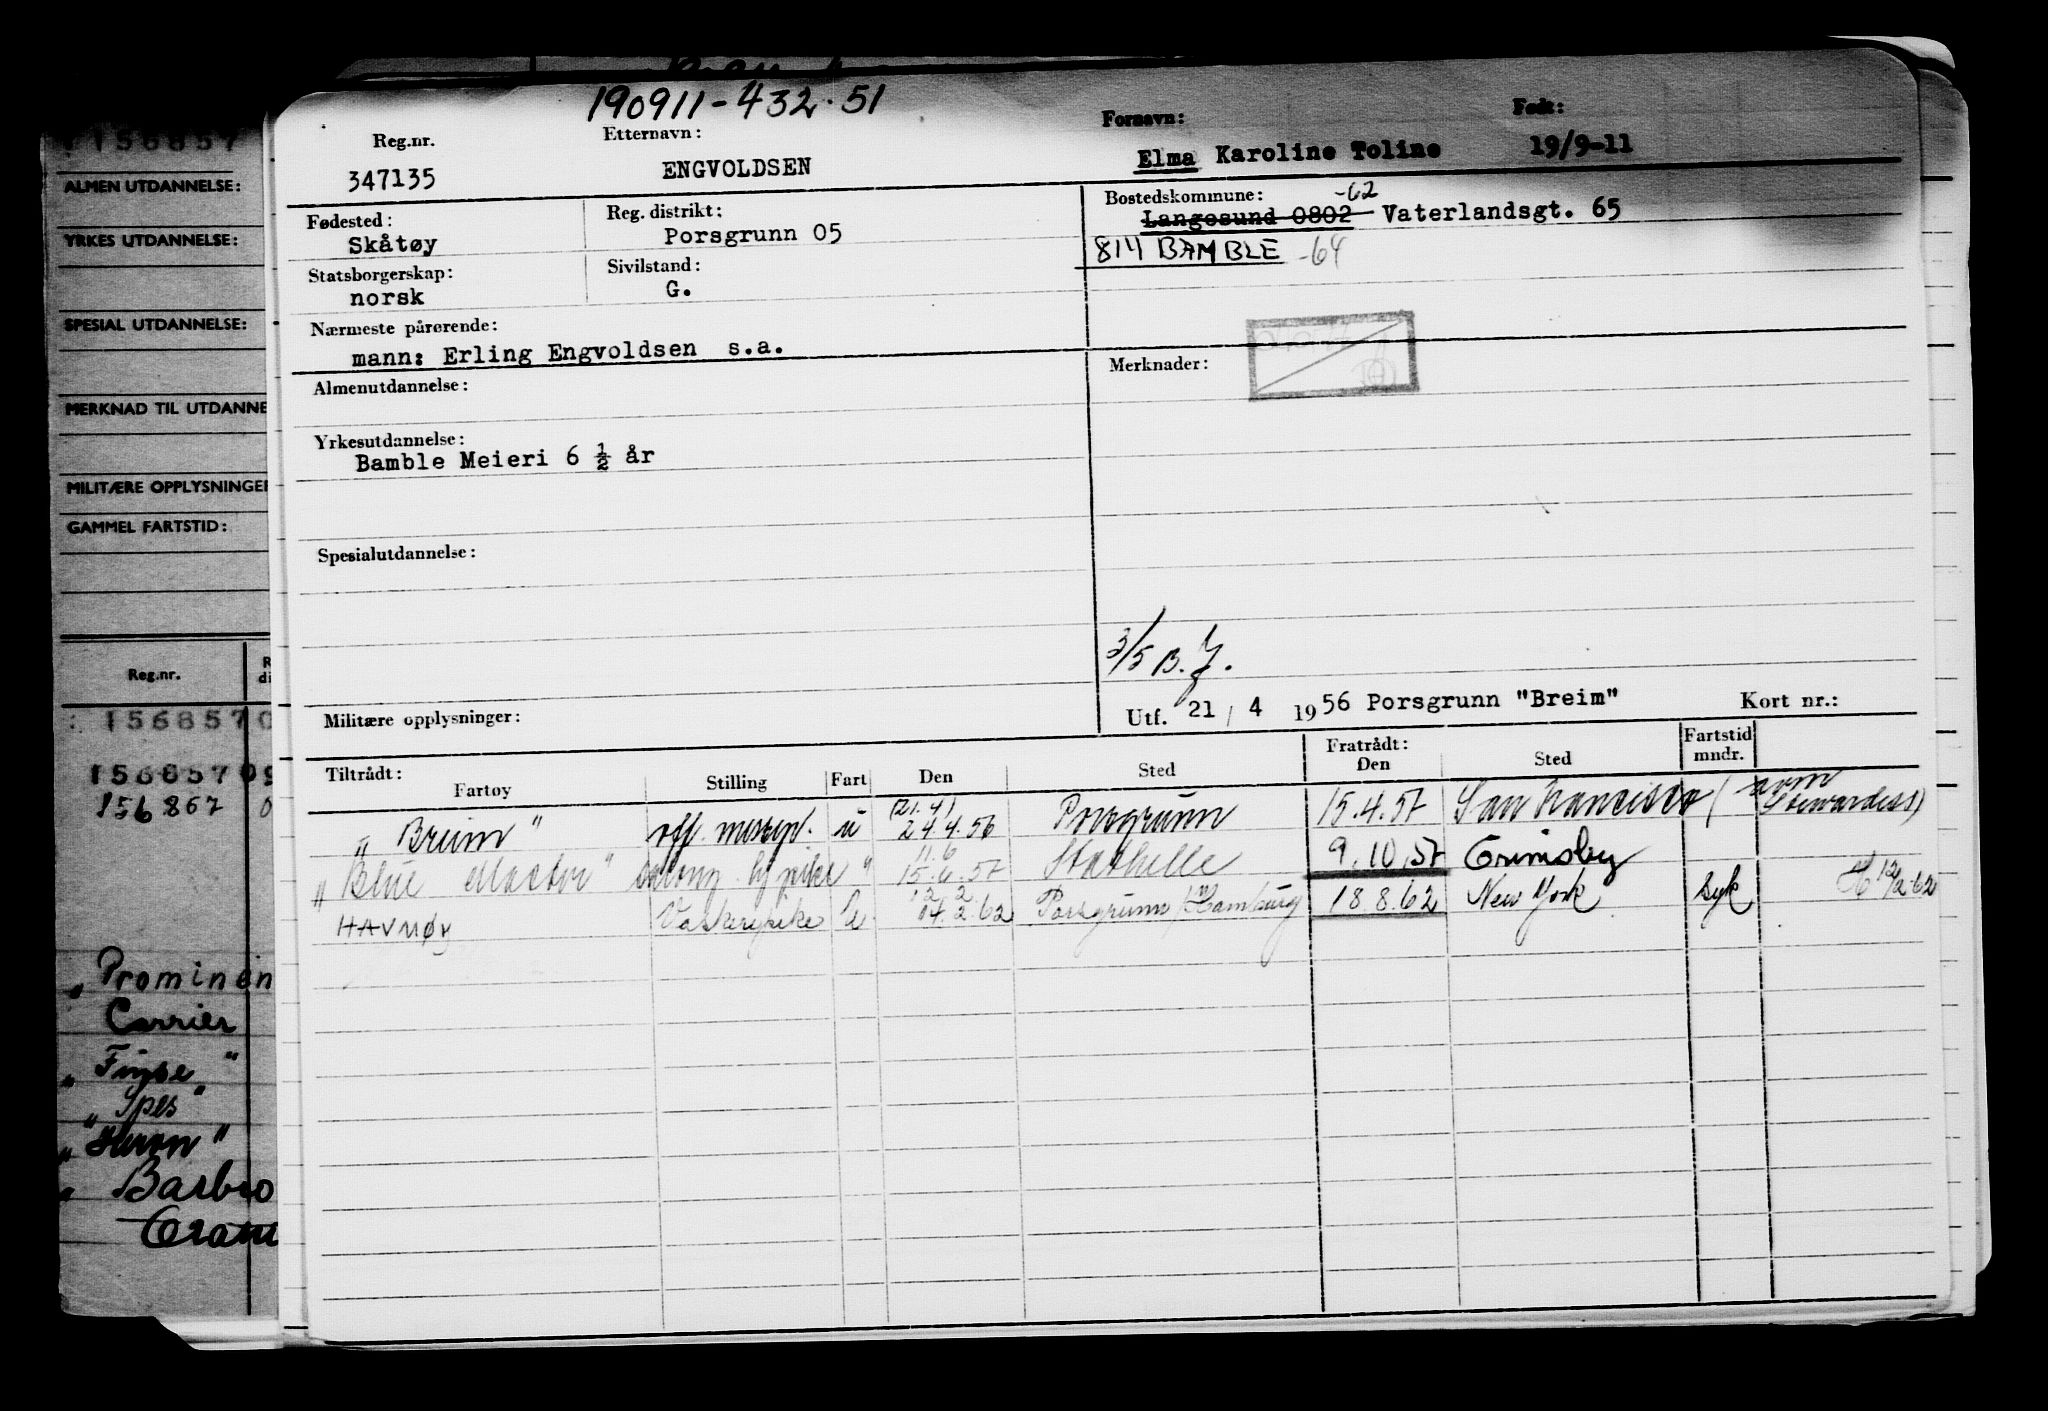 190911-432.51
Reg.nr. Etternavn: Fornavn: Født:
347135 ENGVOLDSEN Elma Karoline Toline 19/9-11
Fødested: Reg. distrikt: Bostedskommune: -62
Skåtøy Porsgrunn 05 Langesund 0802 Vaterlandsgt. 65
814 BAMBLE -64
Statsborgerskap: Sivilstand:
norsk G.
Nærmeste pårørende:
mann: Erling Engvoldsen s.a.
Merknader:
Almenutdannelse:
Yrkesutdannelse:
Bamble Meieri 6 ½ år
Spesialutdannelse:
3/5 B.J.
Militære opplysninger:
Utf. 21 / 4 1956 Porsgrunn "Breim" Kort nr.:
Tiltrådt: Fratrådt: Fartstid
Fartøy Stilling Fart Den Sted Den Sted mndr.
(21.4)
"Breim" off. messep. u 24.4.56 Porsgrunn 15.4.57 San Francisco (som Stewardess)
11.6
"Blue Master" salong " 15.6.57 Stathelle 9.10.57 Grimsby
12.2
HAVNØY Vaskeripike U 14.2.62 Porsgrunn Hamburg 18.8.62 New York Syk 12/2-62
156857
ALMEN UTDANNELSE:
YRKES UTDANNELSE:
SPESIAL UTDANNELSE:
MERKNAD TIL UTDANNE
MILITÆRE OPPLYSNINGER
GAMMEL FARTSTID:
Reg.nr. R
di
1568570
15685709
156867 0
"Prominen
Carrier
"Finse"
"Spes"
"Heron"
" Barbro